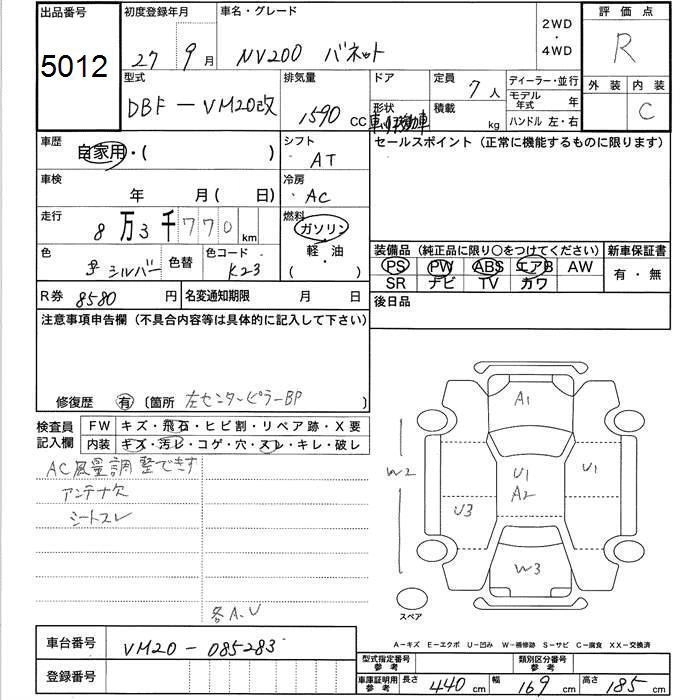 出品番号
5012
初度登録年月
27 9月
車名・グレード
NV200 バネット
2WD
・
4WD
評価点
R
外装 内装
C
型式
DBF-VM20改
排気量
1590 CC
ドア
形状
定員
7人
積載
kg
ディーラー・並行
モデル年式 年
ハンドル 左・右
車歴
自家用・( )
シフト
AT
セールスポイント (正常に機能するものに限ります)
車検
年 月( 日)
冷房
AC
走行
8万3千770km
燃料
ガソリン
軽・油
( ・ )
色
シルバー
色替
色コード
K23
装備品 (純正品に限り○をつけてください)
新車保証書
PS PW ABS エアB AW
有・無
SR ナビ TV カワ
R券 8580 円
名変通知期限 月 日
後日品
注意事項申告欄 (不具合内容等は具体的に記入して下さい)
修復歴 有 〔箇所 左センターピラーBP 〕
検査員記入欄
FW キズ・飛石・ヒビ割・リペア跡・X要
内装 キズ・汚レ・コゲ・穴・スレ・キレ・破レ
AC風量調整できず
アンテナ欠
シートスレ
各A.U
A1
W2
U1
A2
U1
U3
W3
スペア
A-キズ E-エクボ U-凹み W-補修跡 S-サビ C-腐食 XX-交換済
車台番号
VM20-085283
登録番号
型式指定番号 参考
類別区分番号 参考
車庫証明用 参考
長さ 440cm 幅 169cm 高さ 185cm